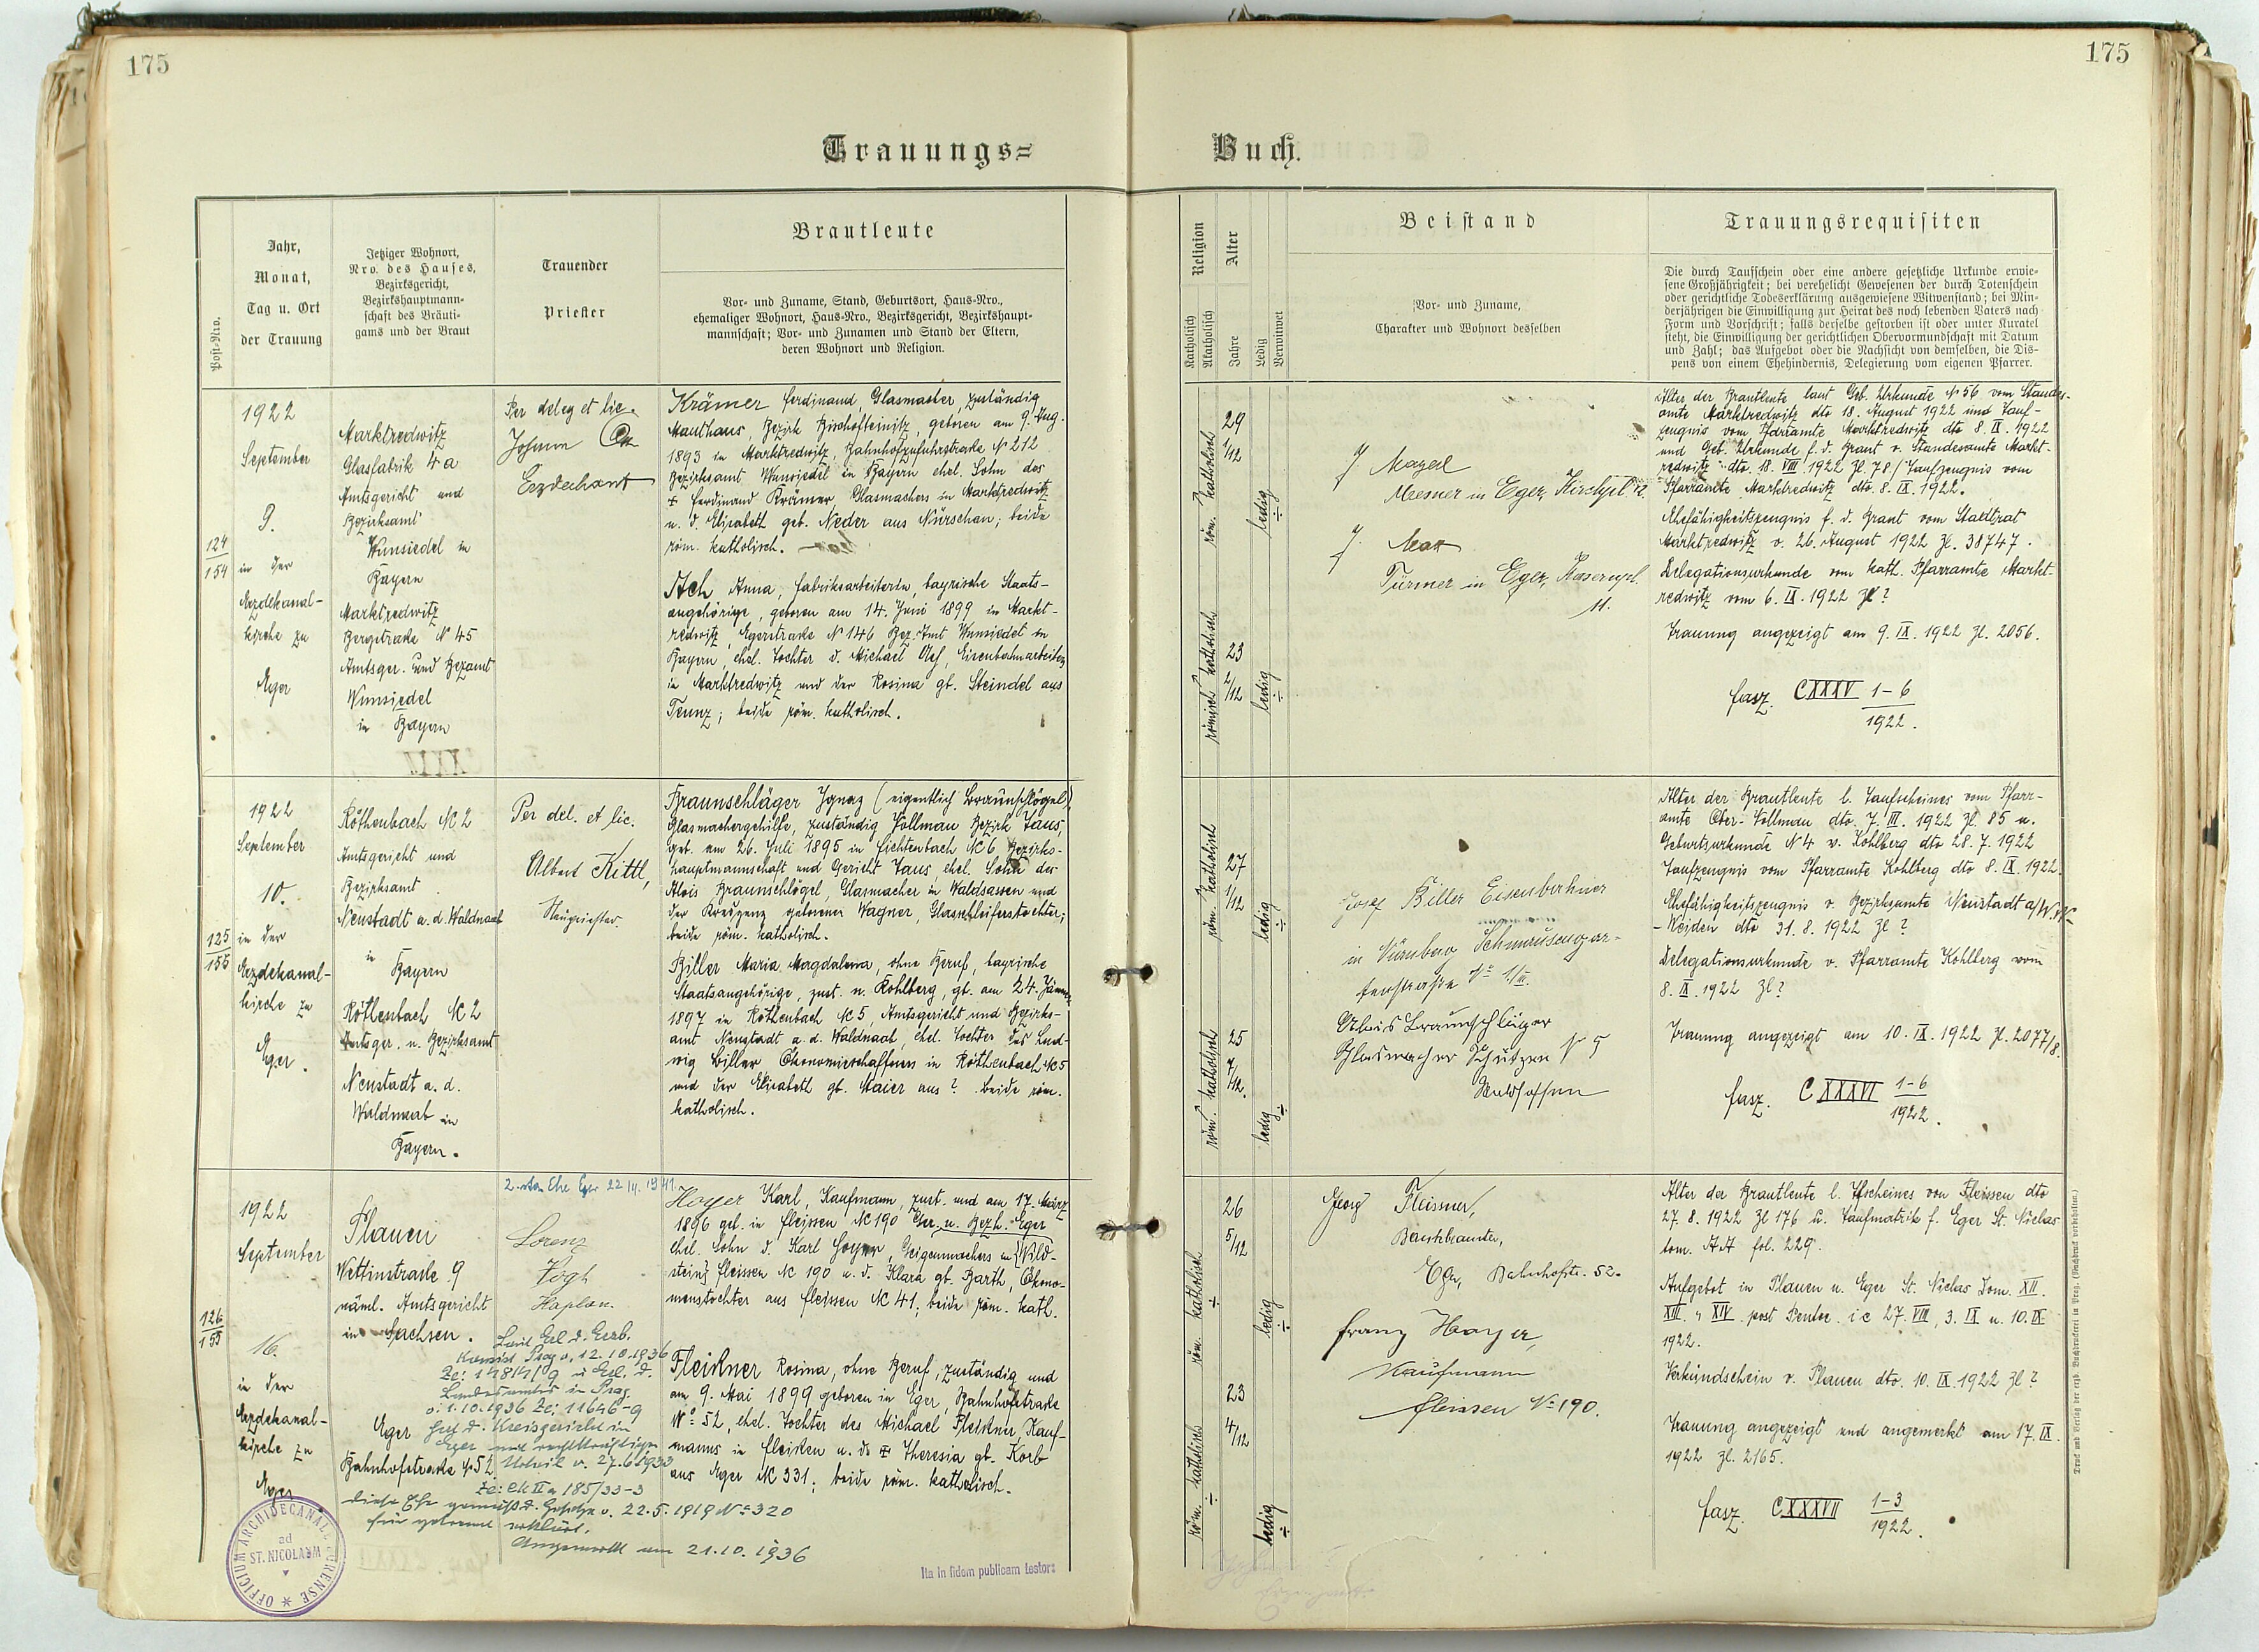 175
175
Trauungs=
Buch.
Post-Nro.
Jahr,
Monat,
Tag u. Ort
der Trauung
Jetziger Wohnort,
Nro. des Hauses,
Bezirksgericht,
Bezirkshauptmann-
schaft des Bräuti-
gams und der Braut
Trauender
Priester
Brautleute
Vor- und Zuname, Stand, Geburtsort, Haus-Nro.,
ehemaliger Wohnort, Haus-Nro., Bezirksgericht, Bezirkshaupt-
mannschaft; Vor- und Zunamen und Stand der Eltern,
deren Wohnort und Religion.
Religion
Katholisch
Akatholisch
Alter
Jahre
Ledig
Verwitwet
Beistand
Vor- und Zuname,
Charakter und Wohnort desselben
Trauungsrequisiten
Die durch Taufschein oder eine andere gesetzliche Urkunde erwie-
sene Großjährigkeit; bei verehelicht Gewesenen der durch Totenschein
oder gerichtliche Todeserklärung ausgewiesene Witwenstand; bei Min-
derjährigen die Einwilligung zur Heirat des noch lebenden Vaters nach
Form und Vorschrift; falls derselbe gestorben ist oder unter Kuratel
steht, die Einwilligung der gerichtlichen Obervormundschaft mit Datum
und Zahl; das Aufgebot oder die Nachsicht von demselben, die Dis-
pens von einem Ehehindernis, Delegierung vom eigenen Pfarrer.
124
154
1922
September
9.
in der
Erzdekanal-
kirche zu
Eger
Marktredwitz
Glasfabrik 4a
Amtsgericht und
Bezirksamt
Wunsiedel in
Bayern
Marktredwitz
Bergstrasse N 45
Amtsger. und Bezamt
Wunsiedel
in Bayern
Per deleg et lic.
Johann
Erzdechant
Krämer Ferdinand, Glasmacher, zuständig
Mauthaus, Bezirk Bischofteinitz, geboren am 9. Aug.
1893 in Marktredwitz, Bahnhofzufuhrstrasse N 212
Bezirksamt Wunsiedel in Bayern ehel. Sohn des
+ Ferdinand Krämer, Glasmachers in Marktredwitz
u. d. Elisabeth geb. Neder aus Nürschan; beide
röm. katholisch.
Ach Anna, Fabriksarbeiterin, bayrische Staats-
angehörige, geboren am 14. Juni 1899 in Markt-
redwitz, Egerstrasse N 146 Bez. Amt Wunsiedel in
Bayern, ehel. Tochter d. Michael Ach, Eisenbahnarbeiters
in Marktredwitz und der Rosina gb. Steindel aus
Teunz; beide röm. katholisch.
röm. katholisch
29
1/12
ledig
römisch katholisch
23
2/12
ledig
J Mayerl
Mesner in Eger, Kirchpl.
J. Max
Türmer in Eger, Kasernpl.
11.
Alter der Brautleute laut Geb. Urkunde N 56 vom Standes-
amte Marktredwitz dto 18. August 1922 und Tauf-
zeugnis vom Pfarramte Marktredwitz dto 8. IX. 1922
und Geb. Urkunde f. d. Braut v. Standesamte Markt-
redwitz dto. 18. VIII 1922 Zl. 78/Taufzeugnis vom
Pfarramte Marktredwitz dto. 8. IX. 1922.
Ehefähigkeitszeugnis f. d. Braut vom Stadtrat
Marktredwitz v. 26. August 1922 Zl. 38747.
Delegationsurkunde vom kath. Pfarramte Markt-
redwitz vom 6. IX. 1922 Zl?
Trauung angezeigt am 9. IX. 1922 Zl. 2056.
fasz. CXXXV 1-6
1922.
125
155
1922
September
10.
in der
Erzdekanal-
kirche zu
Eger.
Röthenbach No 2
Amtsgericht und
Bezirksamt
Neustadt a. d. Waldnaab
in
Bayern
Röthenbach No 2
Amtsger. u. Bezirksamt
Neustadt a. d.
Waldnaab in
Bayern.
Per del. et lic.
Albert Kittl,
Braunschläger Ignaz (eigentlich Braunschlögel)
Glasmachergehilfe, zuständig Vollmau Bezirk Taus,
geb. am 26. Juli 1895 in Fichtenbach No 6 Bezirks-
hauptmannschaft und Gericht Taus, ehel. Sohn des
Alois Braunschlögel, Glasmacher in Waldsassen und
der Kreszenz geborener Wagner, Glasschleiferstochter;
beide röm. katholisch.
Biller Maria Magdalena, ohne Beruf, bayrische
Staatsangehörige, zust. n. Kohlberg, gb. am 24. Jänner
1897 in Röthenbach No 5, Amtsgericht und Bezirks-
amt Neustadt a. d. Waldnaab, ehel. Tochter des Lud-
wig Biller Ökonomieschaffners in Röthenbach No 5
und der Elisabeth gb. Maier aus ? beide röm.
katholisch.
röm. katholisch
27
1/12
ledig
röm. katholisch
25
7/12.
ledig
Josef Biller Eisenbahner
in Nürnberg
Alois Braunschläger
Glasmacher N 5
Waldsassen
Alter der Brautleute l. Taufscheines vom Pfarr-
amte Ober-Vollmau dto. 7. III. 1922 Zl. 85 u.
Geburtsurkunde N 4 v. Kohlberg dto 28. 7. 1922
Taufzeugnis vom Pfarramte Kohlberg dto 8. IX. 1922.
Ehefähigkeitszeugnis v. Bezirksamte Neustadt a/W.
-Weiden dto 31. 8. 1922 Zl?
Delegationsurkunde v. Pfarramte Kohlberg vom
8. IX. 1922 Zl?
Trauung angezeigt am 10. IX. 1922 Zl. 2077/8.
fasz. CXXXVI 1-6
1922.
126
155
1922
September
16.
in der
Erzdekanal-
kirche zu
Eger
Plauen
Wettinstrasse 9
näml. Amtsgericht
in Sachsen.
Eger
Bahnhofstrasse 52
2. Ehe Eger 22/4. 1941.
Lorenz
Vogt
Kaplan.
Laut Erl. d. Erzb.
Konsist Prag v. 12. 10. 1936
Ze: 14814/g u Erl. d.
Landesamtes in Prag.
v. 1. 10. 1936 Ze: 11646-9
hat d. Kreisgericht in
Eger mit rechtkräftigem
Urteil v. 27. 6. 1933
Ze: Ck II a 185/33-3
diese Ehe gemäß d. Gesetze v. 22. 5. 1919 No 320
für getrennt erklärt.
Angemerkt am 21. 10. 1936
Hoyer Karl, Kaufmann, zust. und am 17. März
1896 geb. in Fleissen No 190 Ger. u. Bezh. Eger
ehel. Sohn d. Karl Hoyer, Geigenmachers in {Wild-
stein} Fleissen No 190 u. d. Klara gb. Barth, Ökono-
menstochter aus Fleissen No 41; beide röm. kath.
Fleißner Rosina, ohne Beruf, zuständig und
am 9. Mai 1899 geboren in Eger, Bahnhofstrasse
No 52, ehel. Tochter des Michael Fleißner, Kauf-
manns in Fleißen u. dr + Theresia gb. Korb
aus Eger No 331; beide röm. katholisch.
röm. katholisch
26
5/12
ledig
röm. katholisch
23
4/12
ledig
Georg Fleissner,
Bankbeamter,
Eger, Bahnhofstr. 52.
Franz Hoyer,
Kaufmann
Fleissen No 190.
Alter der Brautleute l. Tfscheines von Fleissen dto
27. 8. 1922 Zl 176 u. Taufmatrik f. Eger St. Niclas
tom. AA fol. 229.
Aufgebot in Plauen u. Eger St. Niclas Dom. XII.
XIII. u XIV. post Pentec. i.e 27. VIII, 3. IX u. 10. IX
1922.
Verkündschein v. Plauen dto. 10. IX. 1922 Zl?
Trauung angezeigt und angemerkt am 17. IX.
1922 Zl. 2165.
fasz. CXXXVII 1-3
1922.
OFFICIUM ARCHIDECANALE EGRENSE
ad
ST. NICOLAUM
Ita in fidem publicam testor:
Druck und Verlag der erzb. Buchdruckerei in Prag. (Nachdruck verboten.)